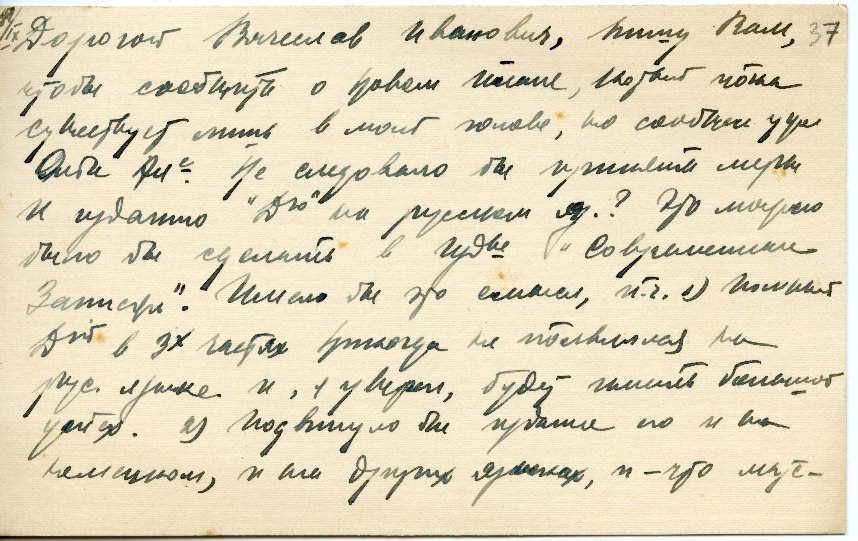 Дорогой Вячеслав Иванович, пишу Вам, 37
чтобы сообщить о новом плане, который пока
существует лишь в моей голове, но сообщен уже
Не следовало бы принять меры
к изданию "Д" на русском яз.? Это можно
было бы сделать в Изд "Современные
Записки". Имело бы это смысл, п.ч. 1) полный
Д в 3х частях никогда не появлялся на
рус. языке и, я уверен, будет иметь большой
успех. 2) Подвинуло бы издание его и на
немецком, и на других языках, и – что